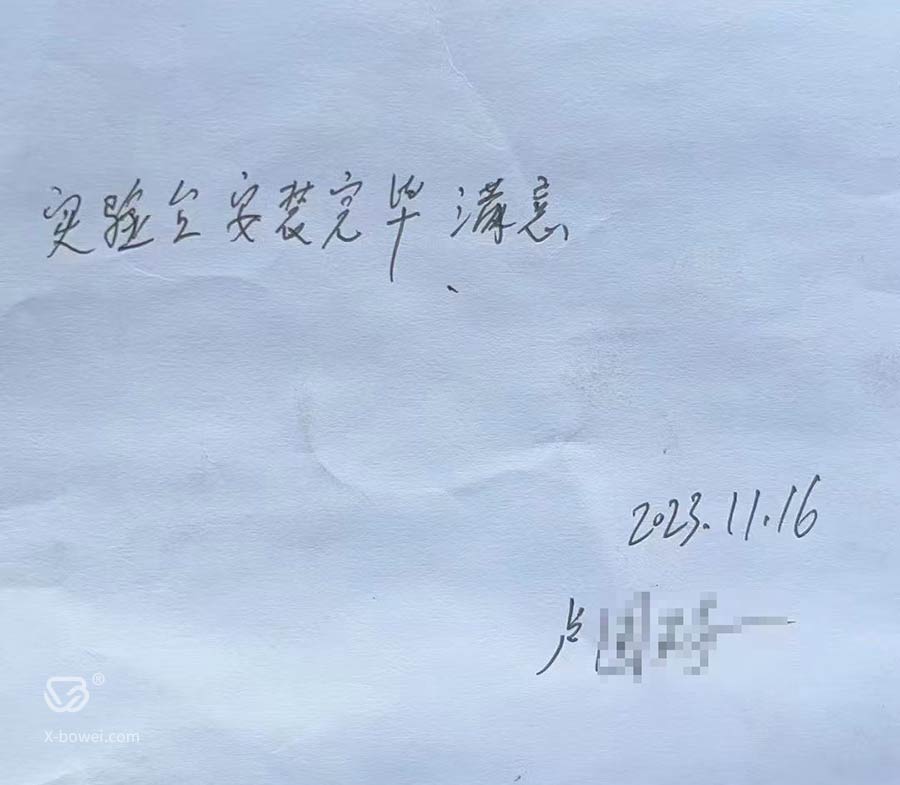 实验台安装完毕 满意
2023.11.16
卢
®
X-bowei.com